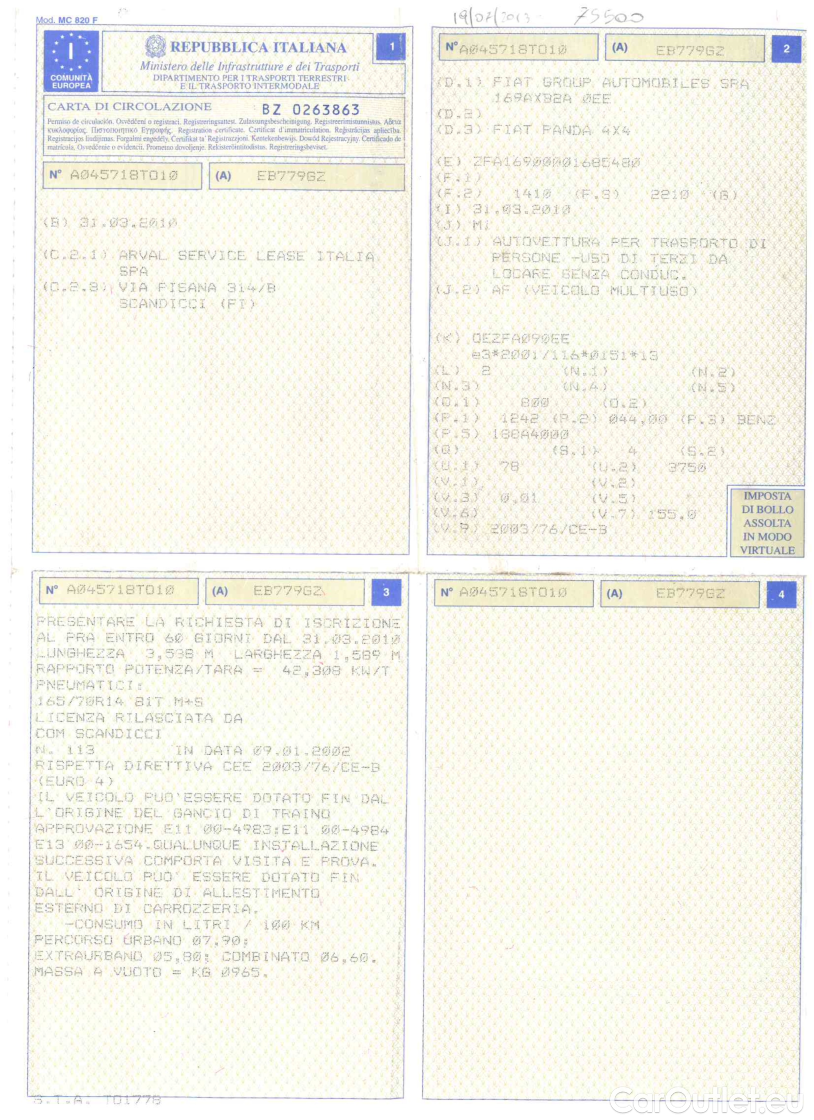 Mod. MC 820 F
19/07/2013 75500
I
COMUNITÀ
EUROPEA
REPUBBLICA ITALIANA
1
Ministero delle Infrastrutture e dei Trasporti
DIPARTIMENTO PER I TRASPORTI TERRESTRI
E IL TRASPORTO INTERMODALE
CARTA DI CIRCOLAZIONE BZ 0263863
Permiso de circulación. Osvědčení o registraci. Registreringsattest. Zulassungsbescheinigung. Registreerimistunnistus. Αδεια
κυκλοφορίας. Registration certificate. Certificat d'immatriculation. Reģistrācijas apliecība.
Registracijos liudijimas. Forgalmi engedély. Kentekenbewijs. Dowód Rejestracyjny. Certificado de
matrícula. Osvedčenie o evidencii. Prometno dovoljenje. Rekisteröintitodistus. Registreringsbeviset.
N° A045718TO10 (A) EB779GZ
(B) 31.03.2010
(C.2.1) ARVAL SERVICE LEASE ITALIA
SPA
(C.2.3) VIA PISANA 314/B
SCANDICCI (FI)
N° A045718TO10 (A) EB779GZ 2
(D.1) FIAT GROUP AUTOMOBILES SPA
169AXB2A 0EE
(D.2)
(D.3) FIAT PANDA 4X4
(E) ZFA16900001685480
(F.1)
(F.2) 1410 (F.3) 2210 (G)
(I) 31.03.2010
(J) M1
(J.1) AUTOVETTURA PER TRASPORTO DI
PERSONE -USO DI TERZI DA
LOCARE SENZA CONDUC.
(J.2) AF (VEICOLO MULTIUSO)
(K) OEZFA090EE
e3*2001/116*0151*13
(L) 2 (N.1) (N.2)
(N.3) (N.4) (N.5)
(O.1) 800 (O.2)
(P.1) 1242 (P.2) 044,00 (P.3) BENZ
(P.5) 188A4000
(Q) (S.1) 4 (S.2)
(U.1) 78 (U.2) 3750
(V.1) (V.2)
(V.3) 0,01 (V.5)
(V.6) (V.7) 155,0
(V.9) 2003/76/CE-B
IMPOSTA
DI BOLLO
ASSOLTA
IN MODO
VIRTUALE
N° A045718TO10 (A) EB779GZ 3
PRESENTARE LA RICHIESTA DI ISCRIZIONE
AL PRA ENTRO 60 GIORNI DAL 31.03.2010
LUNGHEZZA 3,538 M LARGHEZZA 1,589 M
RAPPORTO POTENZA/TARA = 42,308 KW/T
PNEUMATICI:
165/70R14 81T M+S
LICENZA RILASCIATA DA
COM SCANDICCI
N. 113 IN DATA 09.01.2002
RISPETTA DIRETTIVA CEE 2003/76/CE-B
(EURO 4)
IL VEICOLO PUO'ESSERE DOTATO FIN DAL
L'ORIGINE DEL GANCIO DI TRAINO
APPROVAZIONE E11 00-4983;E11 00-4984
E13 00-1654.QUALUNQUE INSTALLAZIONE
SUCCESSIVA COMPORTA VISITA E PROVA.
IL VEICOLO PUO' ESSERE DOTATO FIN
DALL' ORIGINE DI ALLESTIMENTO
ESTERNO DI CARROZZERIA.
-CONSUMO IN LITRI / 100 KM
PERCORSO URBANO 07,90;
EXTRAURBANO 05,80; COMBINATO 06,60.
MASSA A VUOTO = KG 0965.
S.T.A. TO1778
N° A045718TO10 (A) EB779GZ 4
CarOutlet.eu